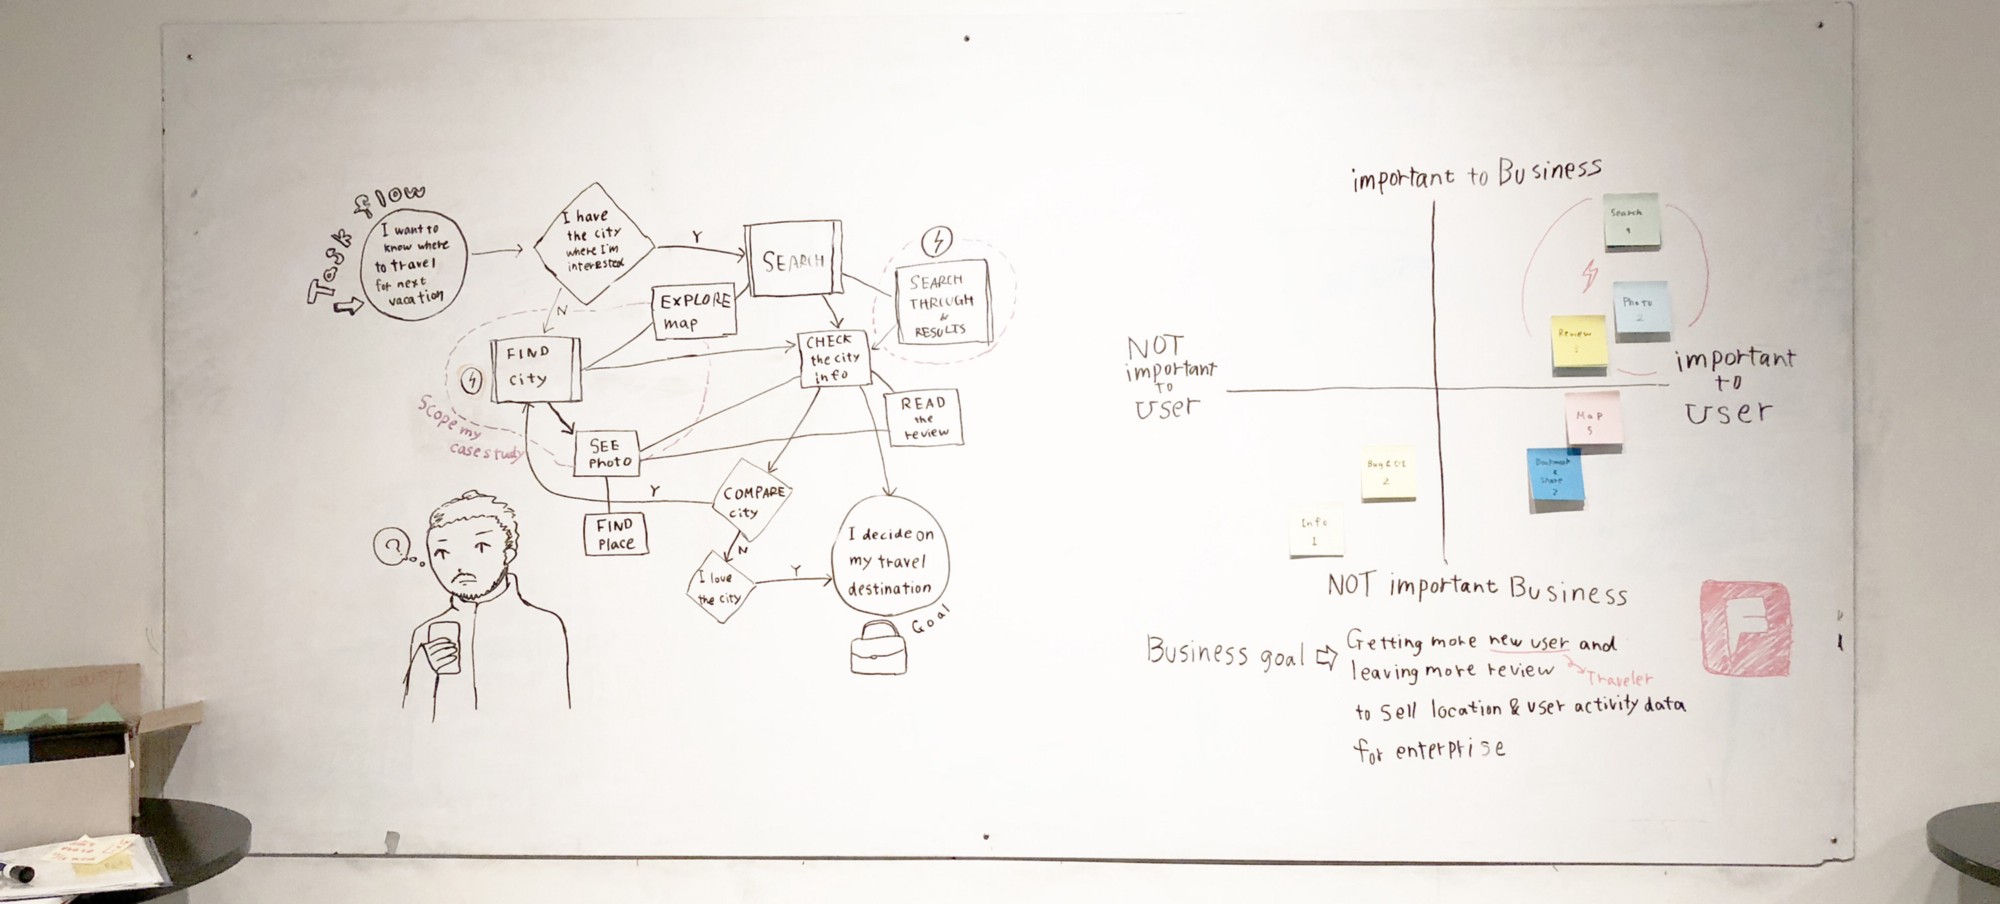 Task flow
I want to
know where
to travel
for next
vacation
I have
the city
where I'm
interested
Y
N
SEARCH
SEARCH
THROUGH
&
RESULTS
EXPLORE
map
FIND
city
CHECK
the city
info
READ
the
review
Scope my
case study
SEE
Photo
FIND
Place
COMPARE
city
Y
N
I love
the city
Y
I decide on
my travel
destination
Goal
?
important to Business
Search
Photo
2
Review
NOT
important
TO
User
important
TO
User
Map
5
Share
2
2
Info
1
NOT important Business
Business goal ⇨ Getting more new user and
leaving more review
Traveler
to sell location & user activity data
for enterprise
F